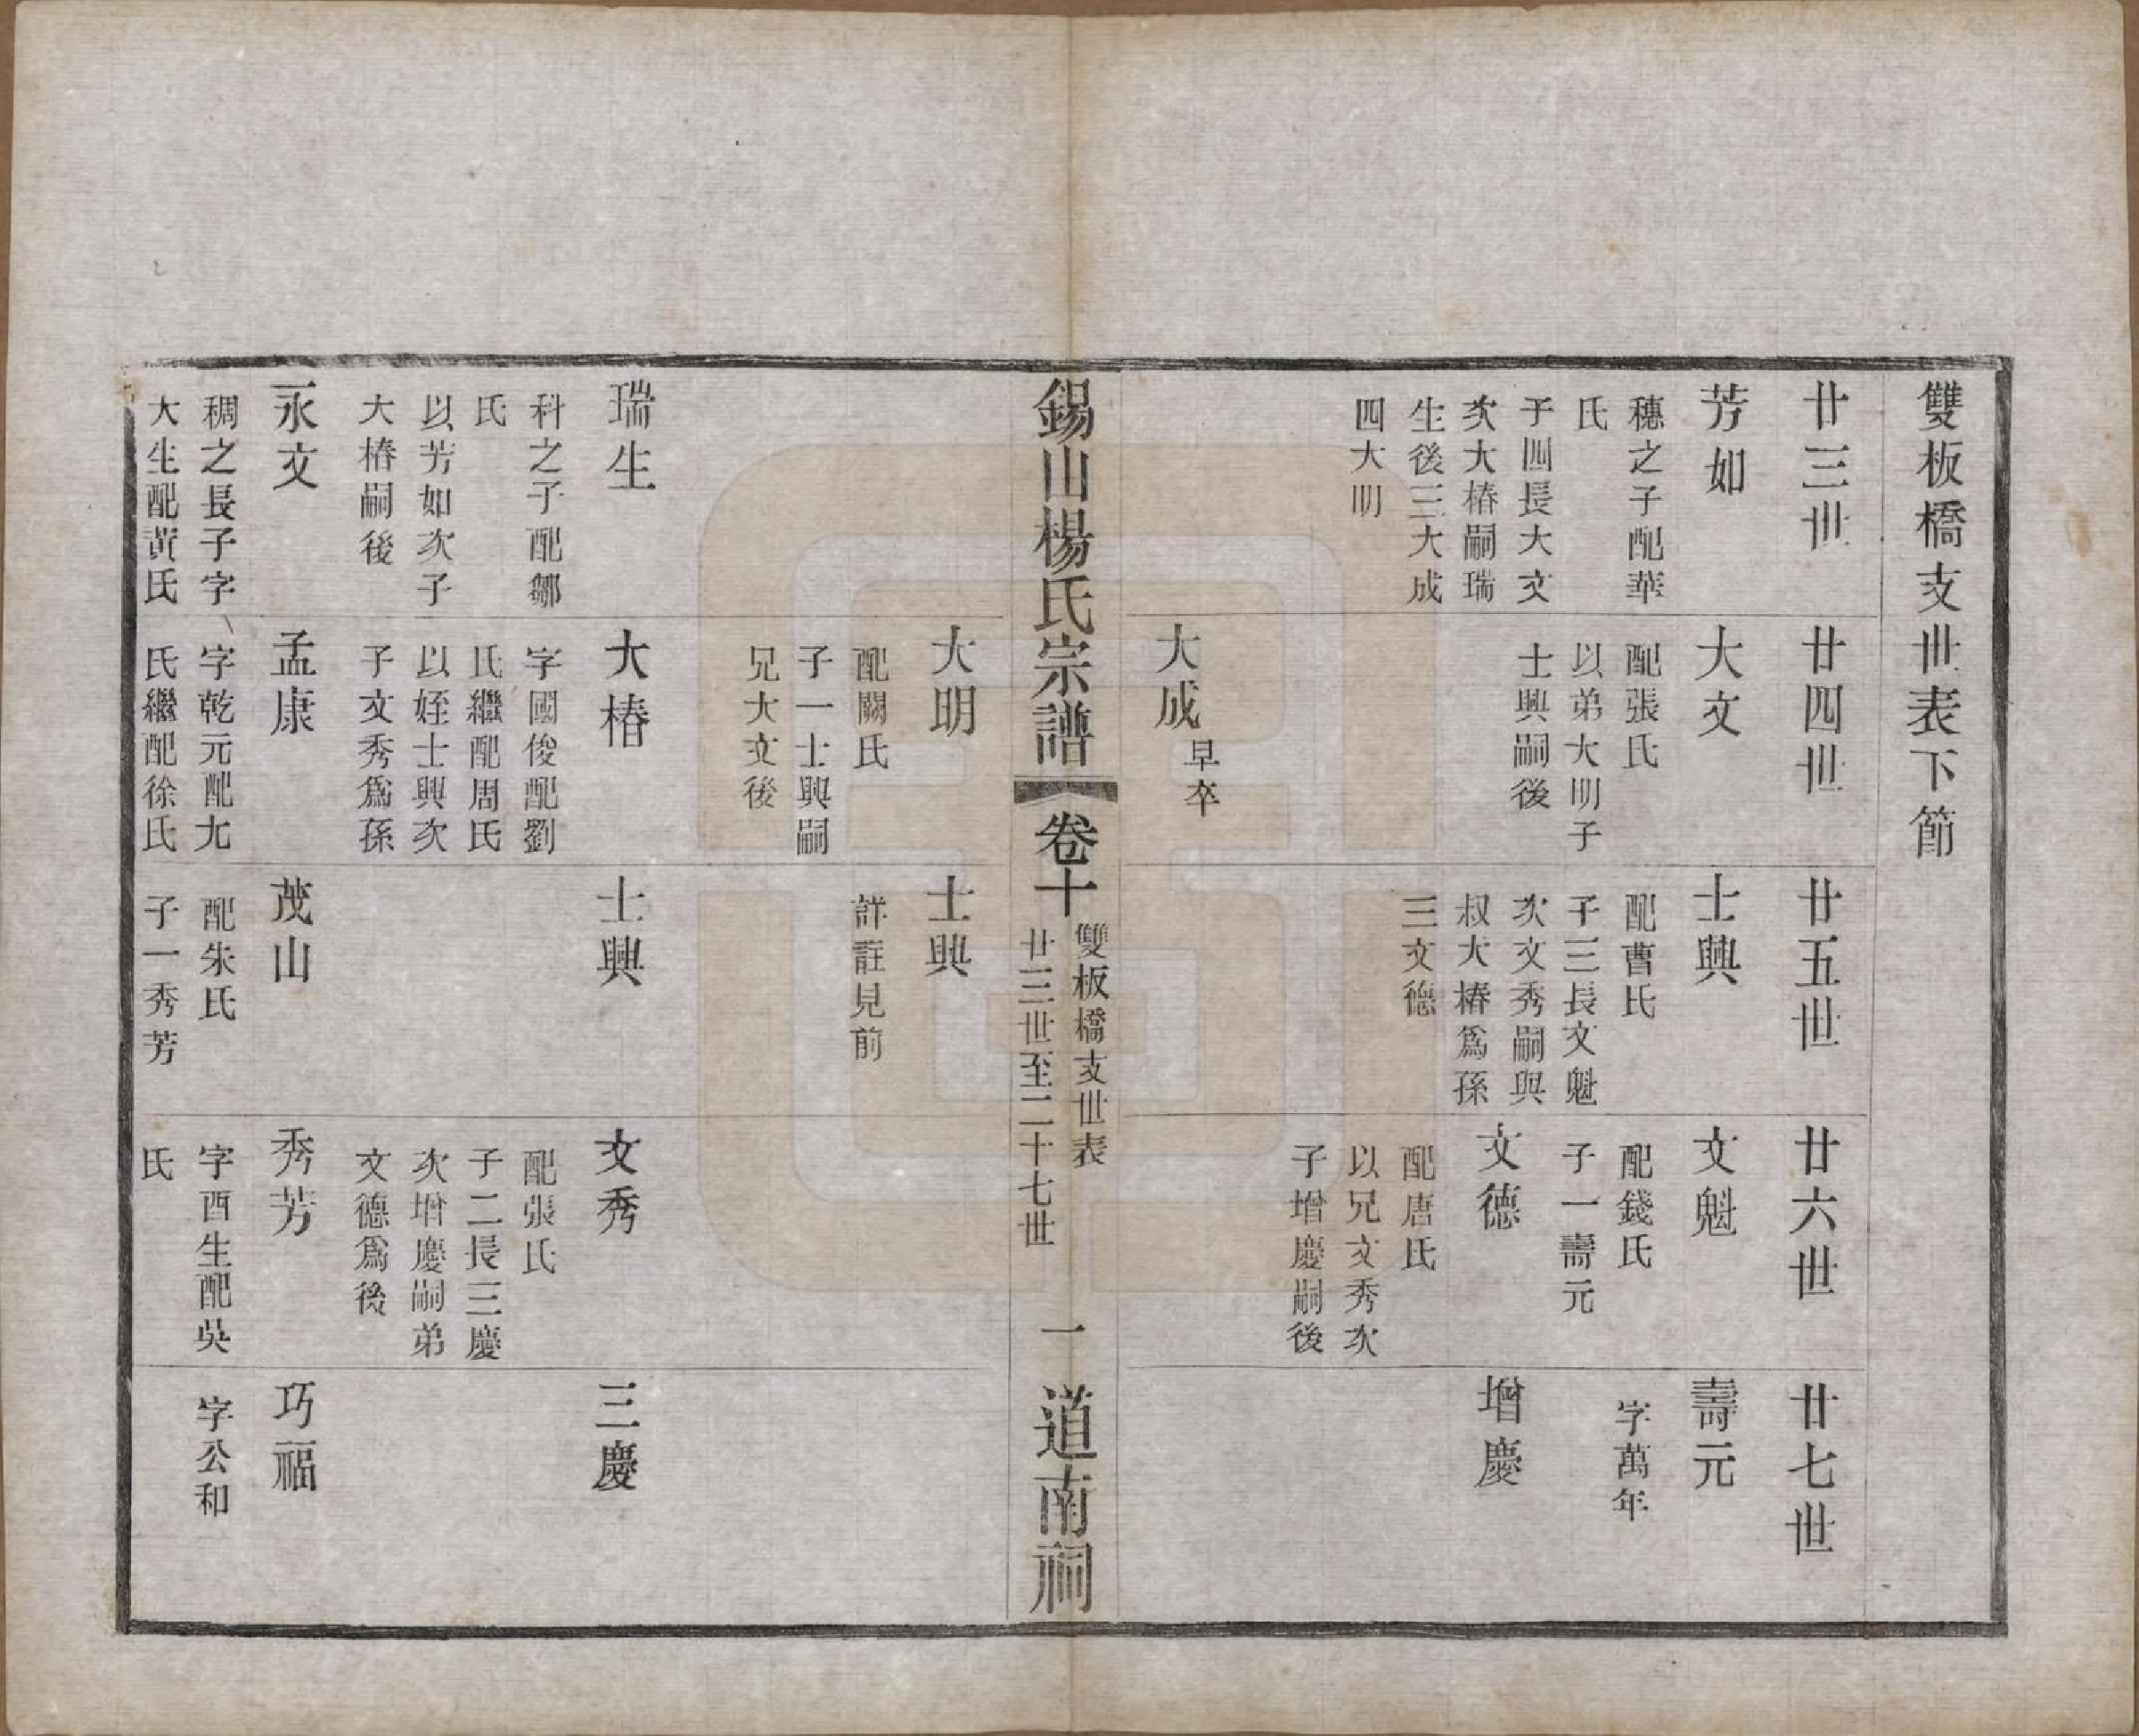 雙板橋支世表下節
廿三世
廿四世
廿五世
廿六世
廿七世
芳如
穗之子配華
氏
子四長大文
次大椿嗣瑞
生後三大成
四大明
大文
配張氏
以弟大明子
士興嗣後
士興
配曹氏
子三長文魁
次文秀嗣與
叔大椿爲孫
三文德
文魁
配錢氏
子一壽元
壽元
字萬年
文德
配唐氏
以兄文秀次
子增慶嗣後
增慶
大成
早卒
錫山楊氏宗譜
卷十
雙板橋支世表
廿三世至二十七世
一
道南祠
大明
配闕氏
子一士興嗣
兄大文後
士興
詳註見前
瑞生
科之子配鄒
氏
以芳如次子
大椿嗣後
大椿
字國俊配劉
氏繼配周氏
以姪士興次
子文秀爲孫
士興
文秀
配張氏
子二長三慶
次增慶嗣弟
文德爲後
三慶
永文
稠之長子字
大生配黃氏
孟康
字乾元配尢
氏繼配徐氏
茂山
配朱氏
子一秀芳
秀芳
字酉生配吳
氏
巧福
字公和